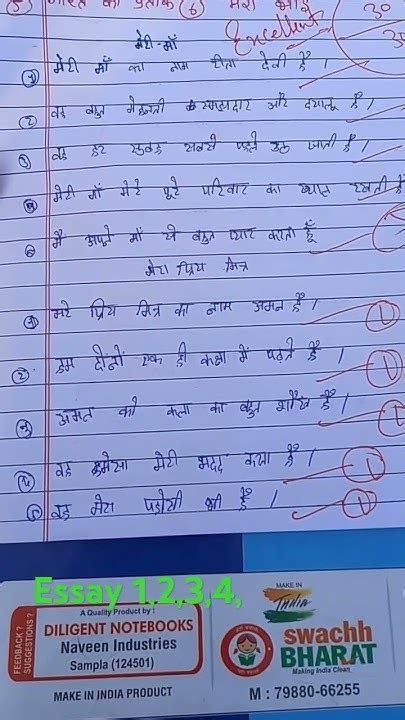 भारत का प्रतीक (6) मेरा भाई
Excellent
30
30
मेरी माँ
(1) मेरी माँ का नाम गीता देवी है ।
(2) वह बहुत मेहनती समझदार और दयालू है ।
(3) वह हर सुबह सबसे पहले उठ जाती है ।
(4) मेरी माँ मेरे पूरे परिवार का ख्याल रखती है
(5) मै अपने माँ से बहुत प्यार करता हूँ
मेरा प्रिय मित्र
(1) मेरे प्रिय मित्र का नाम अमन है । 1
(2) हम दोनों एक ही कक्षा में पढ़ते है । 1
(3) अमन को कला का बहुत शौख है । 1
(4) वह हमेसा मेरी मदद करता है । 1
(5) वह मेरा पड़ोसी भी है । 1
Essay 1.2,3,4,
FEEDBACK ?
SUGGESTIONS ?
A Quality Product by :
DILIGENT NOTEBOOKS
Naveen Industries
Sampla (124501)
MAKE IN INDIA PRODUCT
MAKE IN
INDIA
swachh
BHARAT
Making India Clean
M : 79880-66255